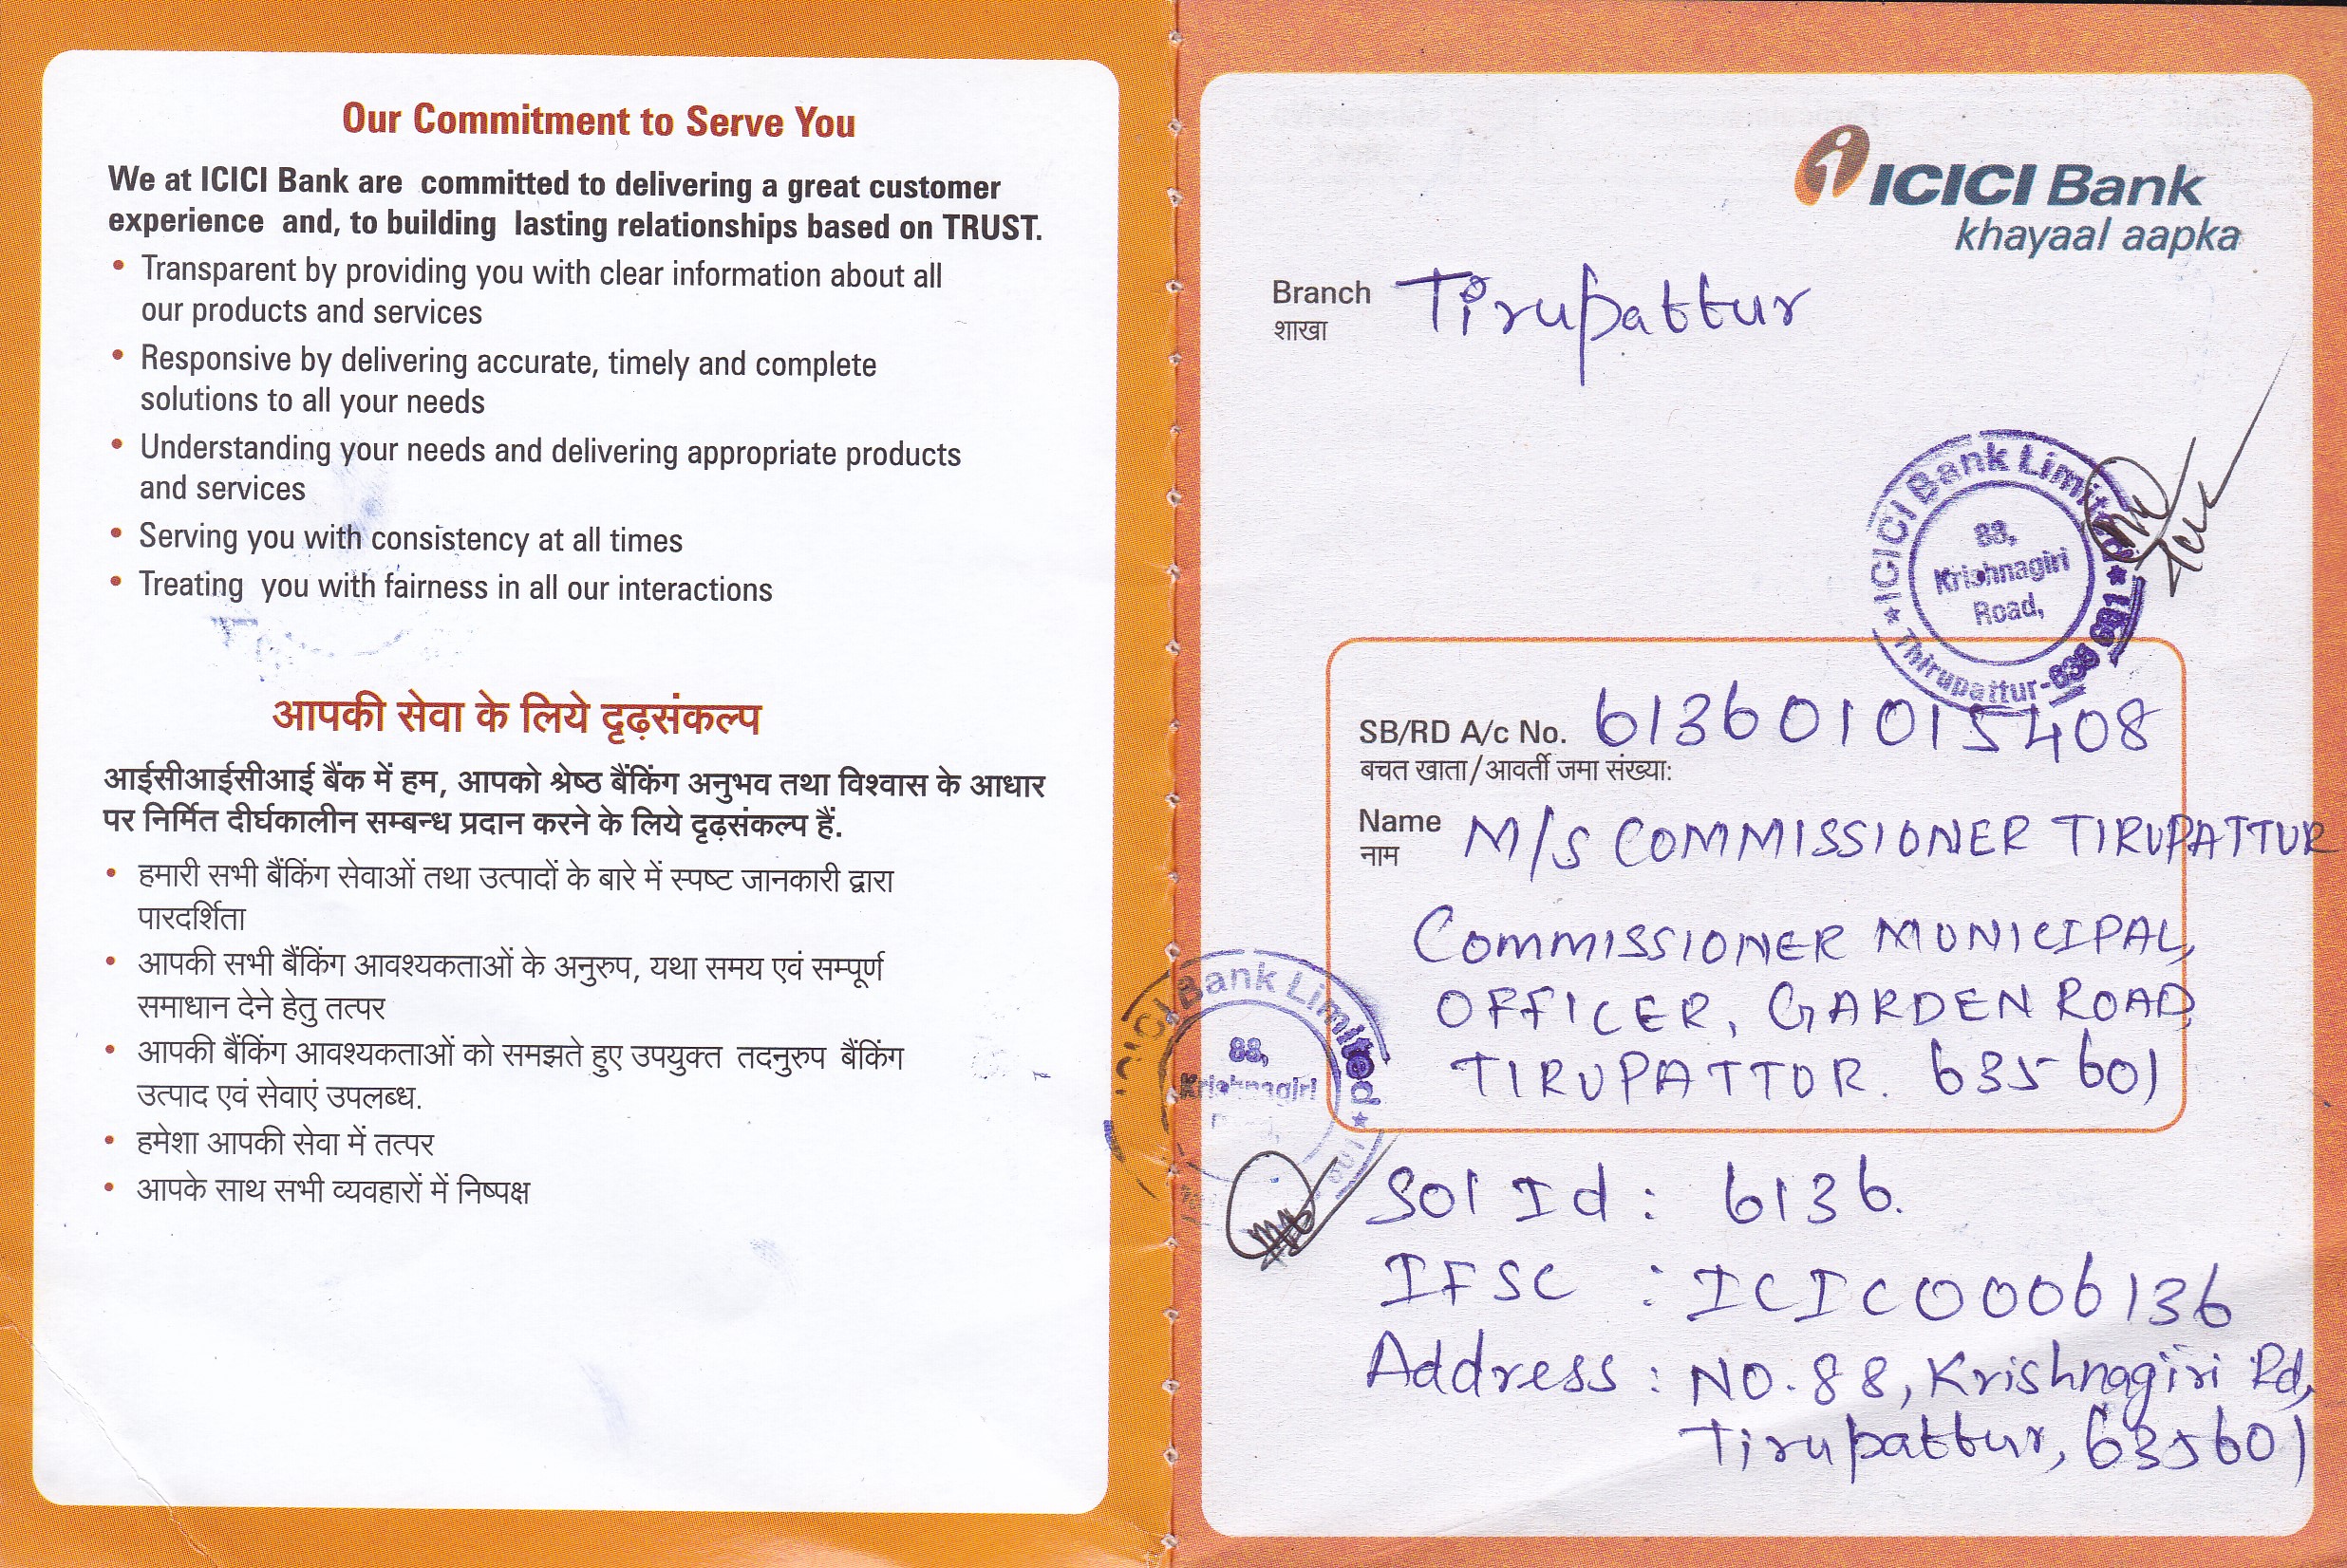 Our Commitment to Serve You
We at ICICI Bank are committed to delivering a great customer
experience and, to building lasting relationships based on TRUST.
• Transparent by providing you with clear information about all
our products and services
• Responsive by delivering accurate, timely and complete
solutions to all your needs
• Understanding your needs and delivering appropriate products
and services
• Serving you with consistency at all times
• Treating you with fairness in all our interactions
आपकी सेवा के लिये दृढ़संकल्प
आईसीआईसीआई बैंक में हम, आपको श्रेष्ठ बैंकिंग अनुभव तथा विश्वास के आधार
पर निर्मित दीर्घकालीन सम्बन्ध प्रदान करने के लिये दृढ़संकल्प हैं.
• हमारी सभी बैंकिंग सेवाओं तथा उत्पादों के बारे में स्पष्ट जानकारी द्वारा
पारदर्शिता
• आपकी सभी बैंकिंग आवश्यकताओं के अनुरुप, यथा समय एवं सम्पूर्ण
समाधान देने हेतु तत्पर
• आपकी बैंकिंग आवश्यकताओं को समझते हुए उपयुक्त तदनुरुप बैंकिंग
उत्पाद एवं सेवाएं उपलब्ध.
• हमेशा आपकी सेवा में तत्पर
• आपके साथ सभी व्यवहारों में निष्पक्ष
ICICI Bank
khayaal aapka
Branch Tirupattur
शाखा
ICICI Bank Limited
88,
Krishnagiri
Road,
Thirupattur-
SB/RD A/c No. 613601015408
बचत खाता/आवर्ती जमा संख्या:
Name M/S COMMISSIONER TIRUPATTUR
नाम
COMMISSIONER MUNICIPAL,
OFFICER, GARDEN ROAD,
TIRUPATTUR. 635601
ICICI Bank Limited
88,
Krishnagiri
Sol Id : 6136.
IFSC : ICIC0006136
Address : NO.88, Krishnagiri Rd,
Tirupattur, 635601